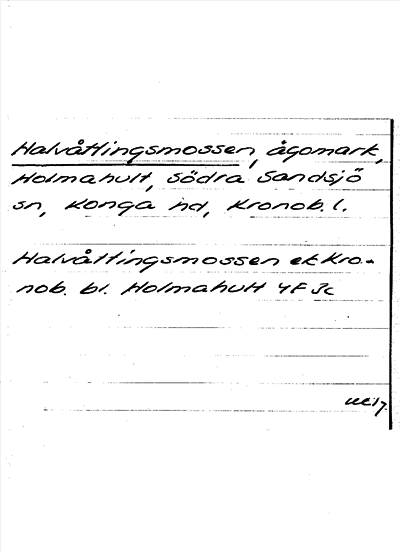 Halvåttingsmossen, ägomark,
Holmahult, Södra Sandsjö
sn, Konga hd, Kronob. l.
Halvåttingsmossen ek Kro-
nob. bl. Holmahult 4F 3c